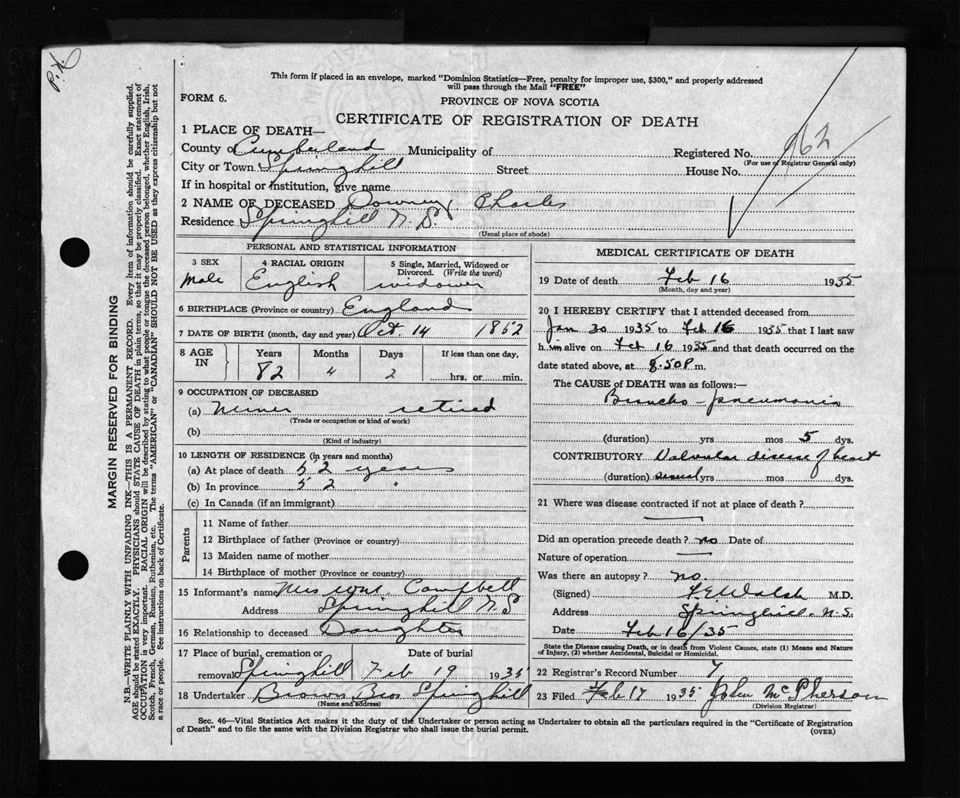 P.K.
This form if placed in an envelope, marked "Dominion Statistics—Free, penalty for improper use, $300," and properly addressed
will pass through the Mail "FREE"
FORM 6.
PROVINCE OF NOVA SCOTIA
CERTIFICATE OF REGISTRATION OF DEATH
1 PLACE OF DEATH—
County of Cumberland Municipality of Registered No. 162
(For use of Registrar General only)
City or Town Springhill Street House No.
If in hospital or institution, give name
2 NAME OF DECEASED Downey Charles
Residence Springhill N. S.
(Usual place of abode)
PERSONAL AND STATISTICAL INFORMATION
3 SEX 4 RACIAL ORIGIN 5 Single, Married, Widowed or Divorced. (Write the word)
Male English widower
6 BIRTHPLACE (Province or country) England
7 DATE OF BIRTH (month, day and year) Oct 14 1852
8 AGE IN Years Months Days If less than one day,
82 4 2 hrs. or min.
9 OCCUPATION OF DECEASED
(a) Miner retired
(Trade or occupation or kind of work)
(b)
(Kind of industry)
10 LENGTH OF RESIDENCE (in years and months)
(a) At place of death 52 years
(b) In province 52 "
(c) In Canada (if an immigrant)
Parents
11 Name of father
12 Birthplace of father (Province or country)
13 Maiden name of mother
14 Birthplace of mother (Province or country)
15 Informant's name Mrs Wm. Campbell
Address Springhill N.S
16 Relationship to deceased Daughter
17 Place of burial, cremation or removal Date of burial
Springhill Feb 19 1935
18 Undertaker Brown Bros Springhill
(Name and address)
MEDICAL CERTIFICATE OF DEATH
19 Date of death Feb 16 1935
(Month, day and year)
20 I HEREBY CERTIFY that I attended deceased from
Jan 30 1935 to Feb 16 1935 that I last saw
him alive on Feb 16 1935 and that death occurred on the
date stated above, at 8.50 P m.
The CAUSE of DEATH was as follows:—
Broncho-pneumonia
(duration) yrs mos 5 dys.
CONTRIBUTORY Valvular disease of heart
(duration) several yrs mos dys.
21 Where was disease contracted if not at place of death?
Did an operation precede death? no Date of
Nature of operation
Was there an autopsy? no.
(Signed) F.E Walsh M.D.
Address Springhill N.S.
Date Feb 16/35
State the Disease causing Death, or in death from Violent Causes, state (1) Means and Nature
of Injury, (2) whether Accidental, Suicidal or Homicidal.
22 Registrar's Record Number 7
23 Filed Feb 17 1935 John McPherson
(Division Registrar)
Sec. 46—Vital Statistics Act makes it the duty of the Undertaker or person acting as Undertaker to obtain all the particulars required in the "Certificate of Registration
of Death" and to file the same with the Division Registrar who shall issue the burial permit.
(OVER)
MARGIN RESERVED FOR BINDING
N.B.—WRITE PLAINLY WITH UNFADING INK—THIS IS A PERMANENT RECORD. Every item of information should be carefully supplied.
AGE should be stated EXACTLY. PHYSICIANS should STATE CAUSE OF DEATH in plain terms, so that it may be properly classified. Exact statement of
OCCUPATION is very important. RACIAL ORIGIN will be described by stating to what people or tongue the deceased person belonged, whether English, Irish,
Scotch, French, German, Russian, Ruthenian, etc. The terms "AMERICAN" or "CANADIAN" SHOULD NOT BE USED as they express citizenship but not
a race or people. See instructions on back of Certificate.